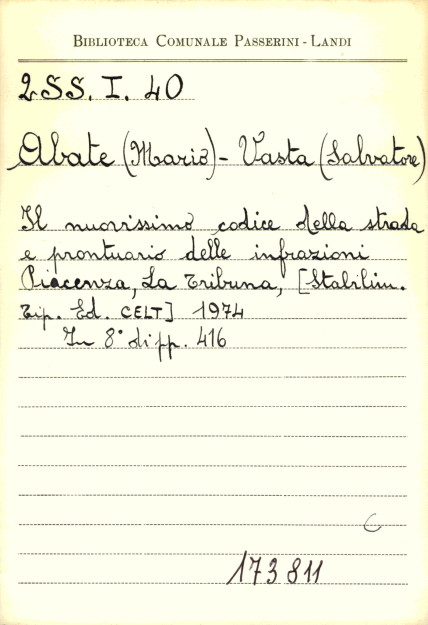 BIBLIOTECA COMUNALE PASSERINI - LANDI
2SS. I. 40
Abate (Mario) - Vasta (Salvatore)
Il nuovissimo codice della strada
e prontuario delle infrazioni
Piacenza, La Tribuna, [Stabilim.
Tip. Ed. CELT] 1974
In 8° di pp. 416
C
173811